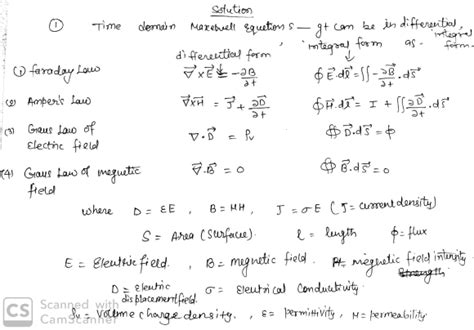 Solution
① Time domain Maxwell equations — It can be in differential, integral
differential form integral form as - form.
(1) Faraday Law ∇×E = -∂B/∂t ∮E.dl = ∬ -∂B/∂t . ds
(2) Amper's Law ∇×H = J + ∂D/∂t ∮H.dl = I + ∬ ∂D/∂t . ds
(3) Gauss Law of ∇.D = ρv ∯ D.ds = ϕ
Electric field
(4) Gauss Law of magnetic ∇.B = 0 ∯ B.ds = 0
field
where D = εE , B = μH , J = σE ( J = current density)
S = Area (Surface). l = length ϕ = flux
E = Electric field , B = magnetic field . H = magnetic field intensity
D = electric displacement field. σ = Electrical Conductivity.
ρv = Volume charge density. , ε = permittivity, μ = permeability.
CS Scanned with
CamScanner